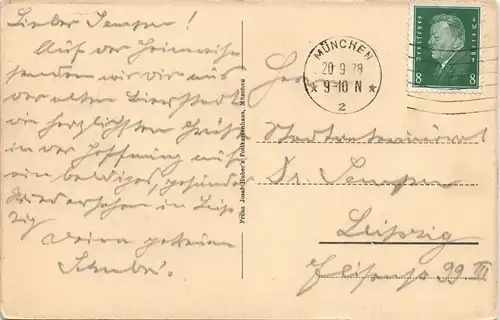 Lieber Semper!
Auf der Heimreise
senden wir dir aus
der alten Bierstadt
die herzlichsten Grüße
in der Hoffnung auf
ein baldiges, gesundes
Wiedersehen in Leip-
zig
Deine getreuen
MÜNCHEN
20 9 28
9-10 N
2
Deutsches Reich
8 8
Franz Josef Huber's Postkartenhaus, München
Herr
Dr. Semper
Leipzig
99 III